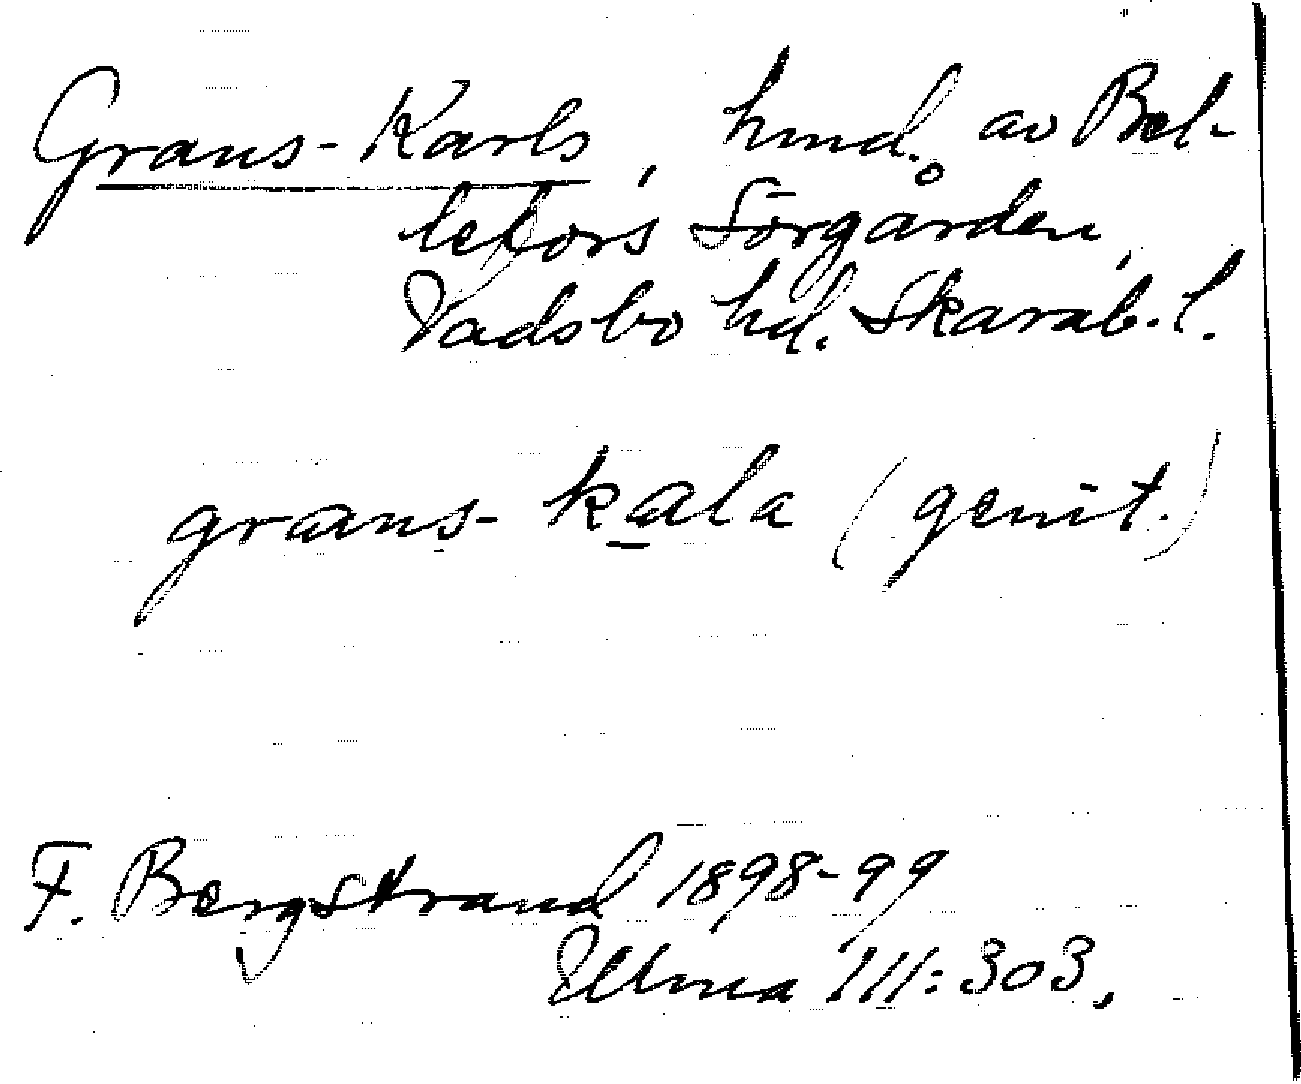 Grans-Karls, hmd. av Bel-
lefors Sörgården,
Vadsbo hd. Skarab. l.
grans- kala (genit.)
F. Bergstrand 1898-99
Ulma 111:303,